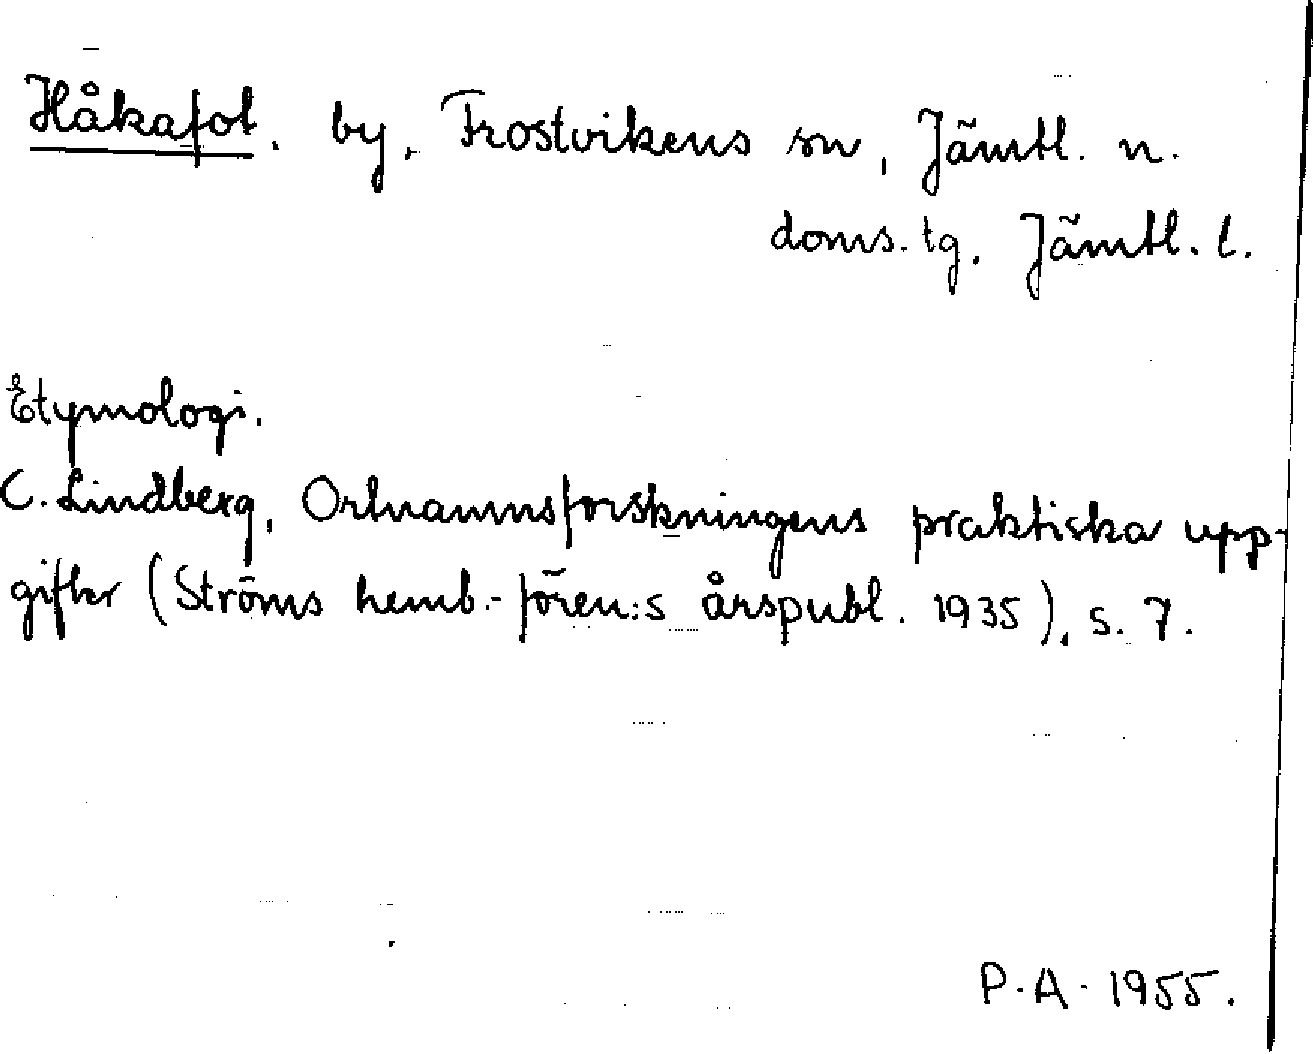 Håkafot, by, Frostvikens sn, Jämtl. n.
doms. tg. Jämtl. l.
Etymologi.
C. Lindberg, Ortnamnsforskningens praktiska upp-
gifter (Ströms hemb.-fören:s årspubl. 1935), s. 7.
P.A. 1955.